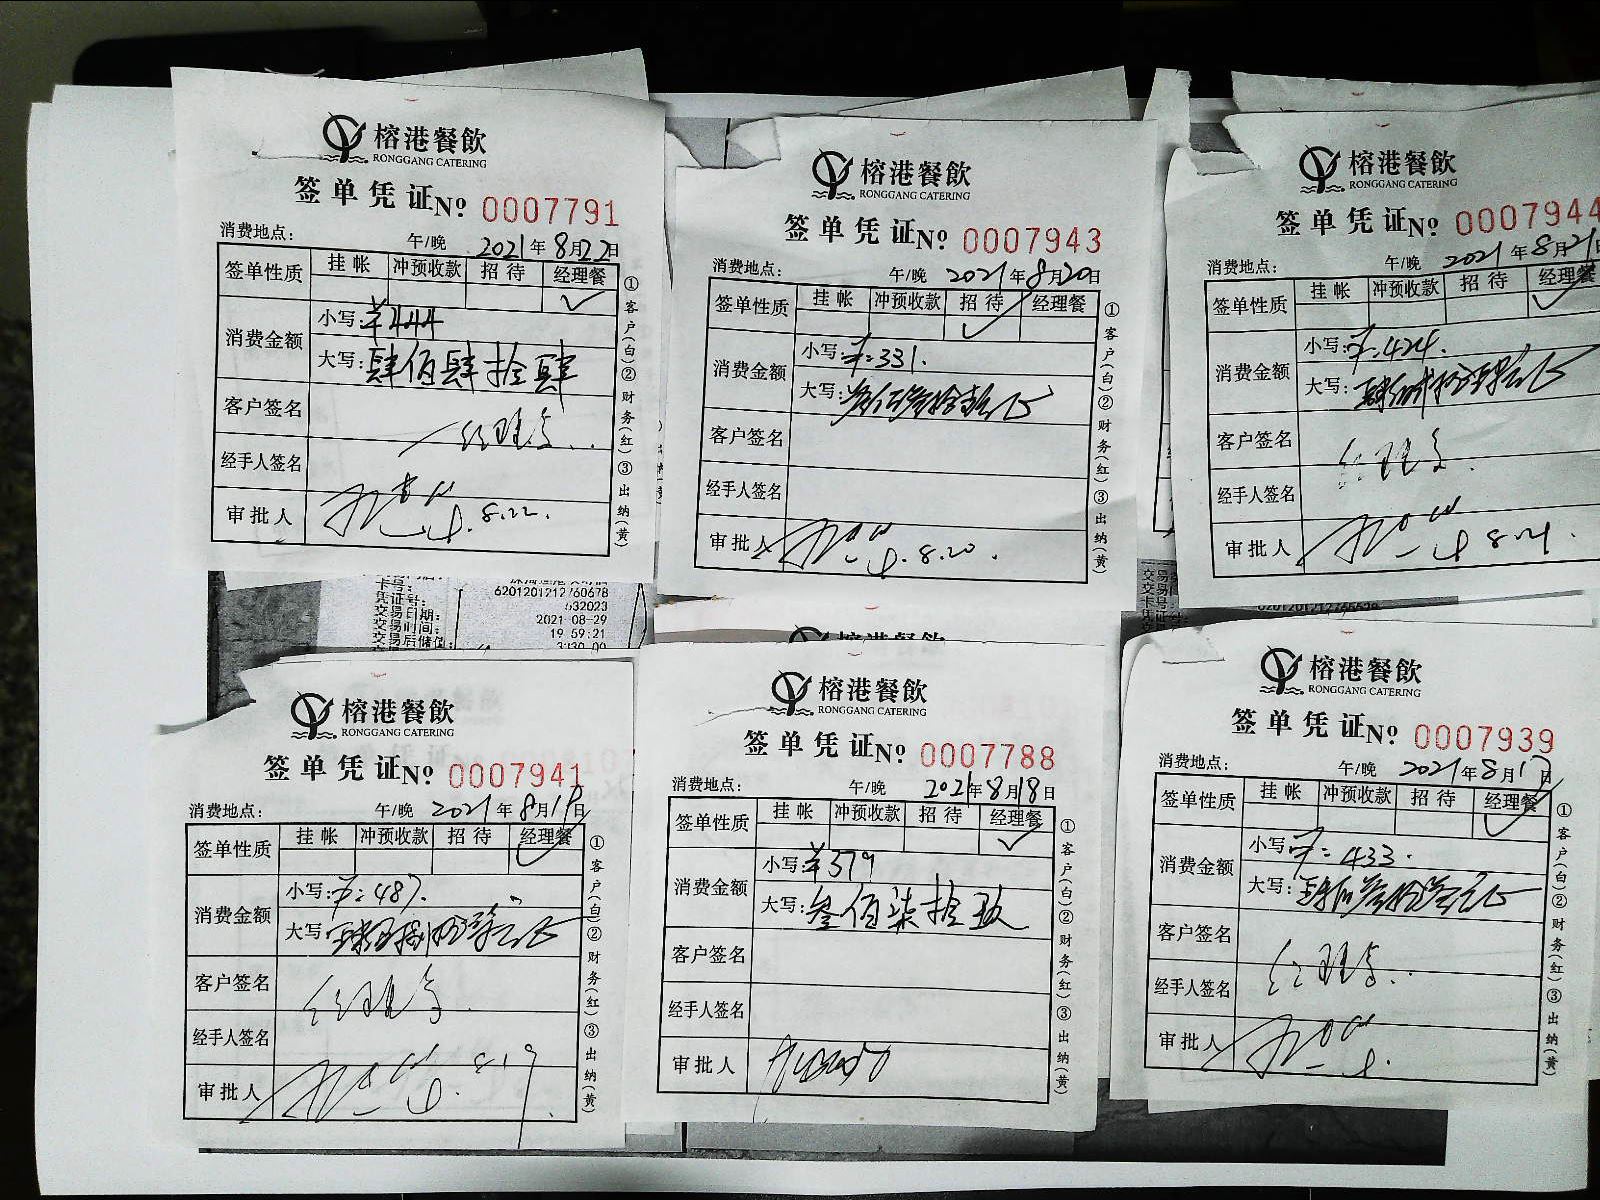 榕港餐飲
RONGGANG CATERING
签单凭证 No 0007791
消费地点： 午/晚 2021年8月22日
签单性质 挂帐 冲预收款 招待 经理餐
✓
消费金额 小写：¥444
大写：肆佰肆拾肆
客户签名 经理餐
经手人签名
审批人 8.22.
①客户(白)②财务(红)③出纳(黄)
榕港餐飲
RONGGANG CATERING
签单凭证 No 0007943
消费地点： 午/晚 2021年8月20日
签单性质 挂帐 冲预收款 招待 经理餐
✓
消费金额 小写：¥:331.
大写：叁佰叁拾壹元正
客户签名
经手人签名
审批人 8.20.
①客户(白)②财务(红)③出纳(黄)
榕港餐飲
RONGGANG CATERING
签单凭证 No 0007944
消费地点： 午/晚 2021年8月21日
签单性质 挂帐 冲预收款 招待 经理餐
✓
消费金额 小写：¥:424.
大写：肆佰贰拾肆元正
客户签名 经理餐
经手人签名
审批人 8.21.
卡号： 6201201212760678
凭证号： 632023
交易日期： 2021-08-29
交易时间： 19:59:21
交易后储值：
榕港餐飲
榕港餐飲
RONGGANG CATERING
签单凭证 No 0007941
消费地点： 午/晚 2021年8月19日
签单性质 挂帐 冲预收款 招待 经理餐
✓
消费金额 小写：¥:487.
大写：肆佰捌拾柒元正
客户签名 经理餐
经手人签名
审批人 8.19
①客户(白)②财务(红)③出纳(黄)
榕港餐飲
RONGGANG CATERING
签单凭证 No 0007788
消费地点： 午/晚 2021年8月18日
签单性质 挂帐 冲预收款 招待 经理餐
✓
消费金额 小写：¥379
大写：叁佰柒拾玖
客户签名
经手人签名
审批人
①客户(白)②财务(红)③出纳(黄)
榕港餐飲
RONGGANG CATERING
签单凭证 No 0007939
消费地点： 午/晚 2021年8月17日
签单性质 挂帐 冲预收款 招待 经理餐
✓
消费金额 小写：¥:433.
大写：肆佰叁拾叁元正
客户签名 经理餐
经手人签名
审批人
①客户(白)②财务(红)③出纳(黄)